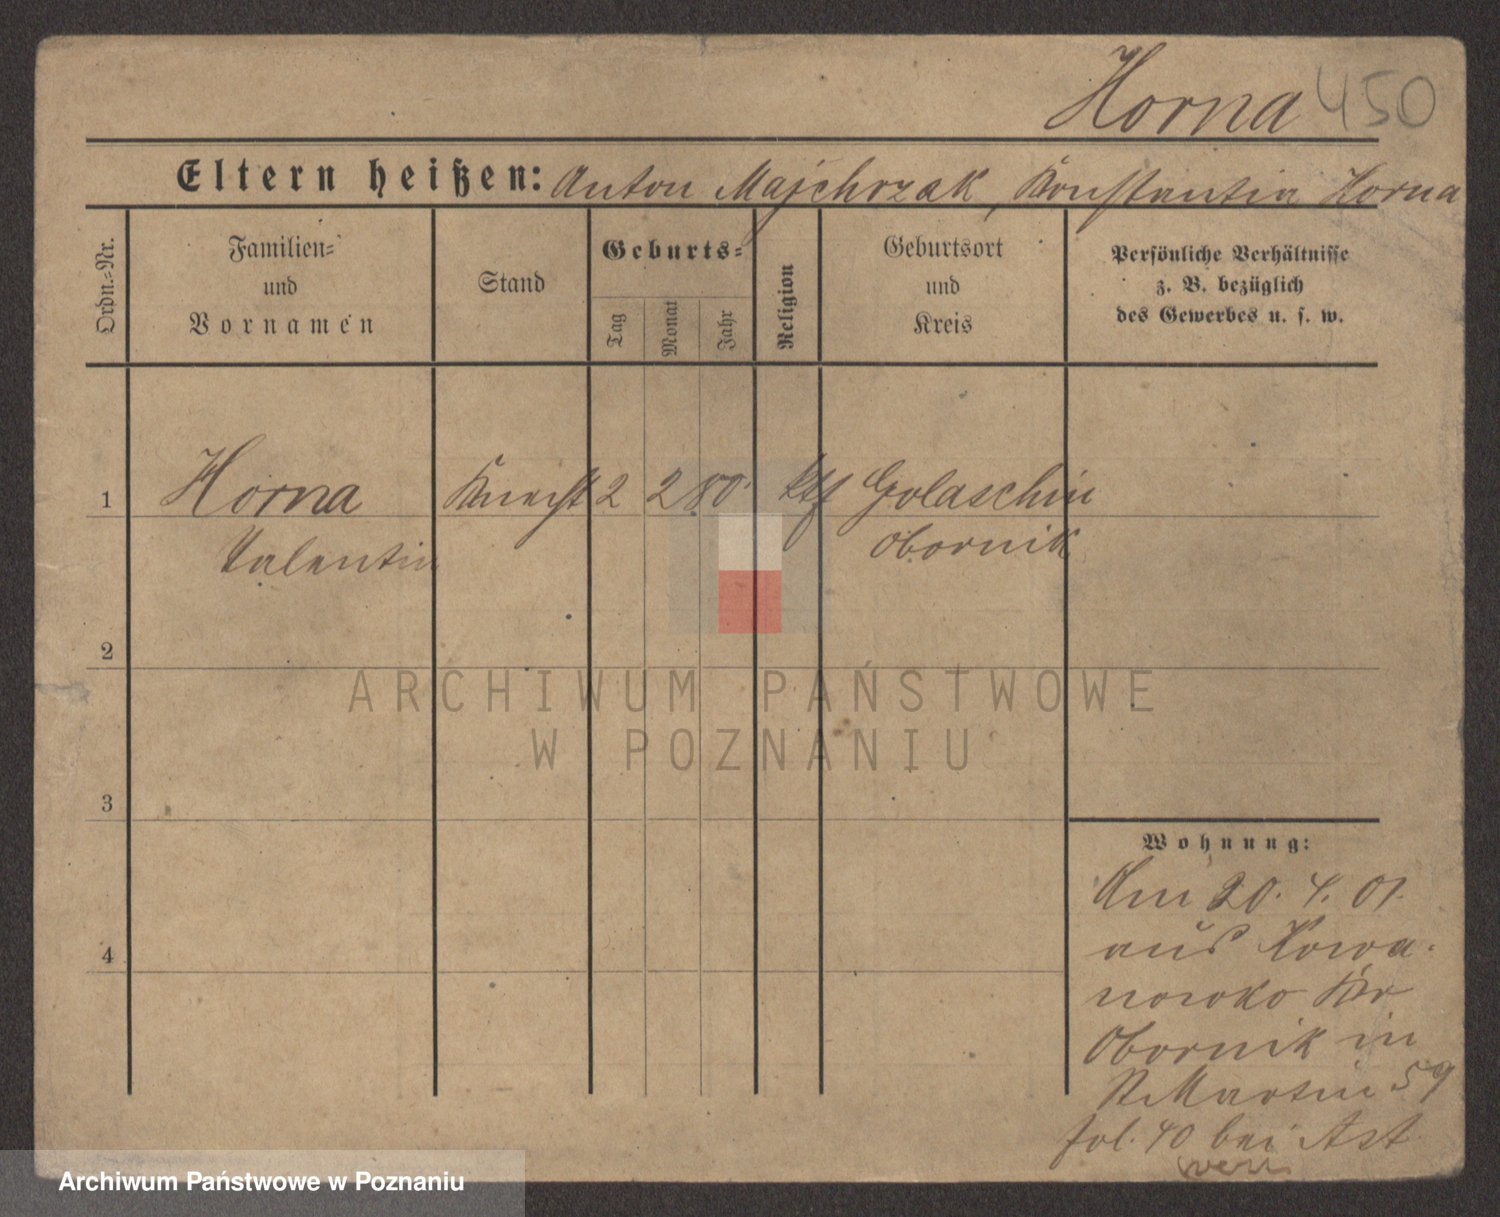 Horna 450
Eltern heißen: Anton Majchrzak, Konstantia Horna
Ordn.-Nr.
Familien-
und
Vornamen
Stand
Geburts-
Tag
Monat
Jahr
Religion
Geburtsort
und
Kreis
Persönliche Verhältnisse
z. B. bezüglich
des Gewerbes u. s. w.
1 Horna Knecht 2 2 80. kth Golaschin
Valentin Obornik
2
3
4
Wohnung:
Am 20. 4. 01.
aus Kowa-
nowko Kr
Obornik in
St Martin 59
fol. 40 bei Ast
ARCHIWUM PAŃSTWOWE
W POZNANIU
Archiwum Państwowe w Poznaniu